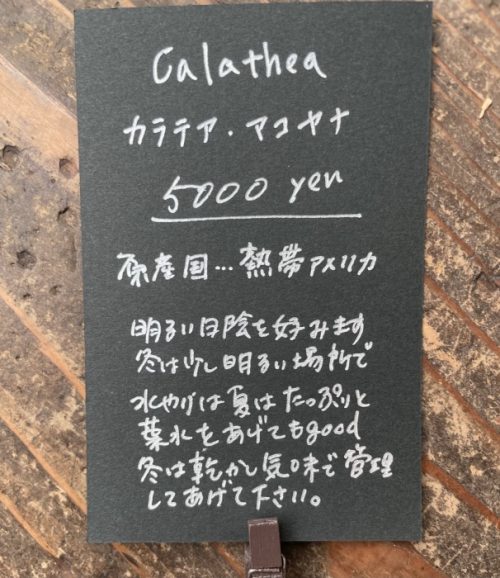 Calathea
カラテア・マコヤナ
5000 yen
原産国…熱帯アメリカ
明るい日陰を好みます
冬は少し明るい場所で
水やりは夏はたっぷりと
葉水をあげてもgood
冬は乾かし気味で管理
してあげて下さい。